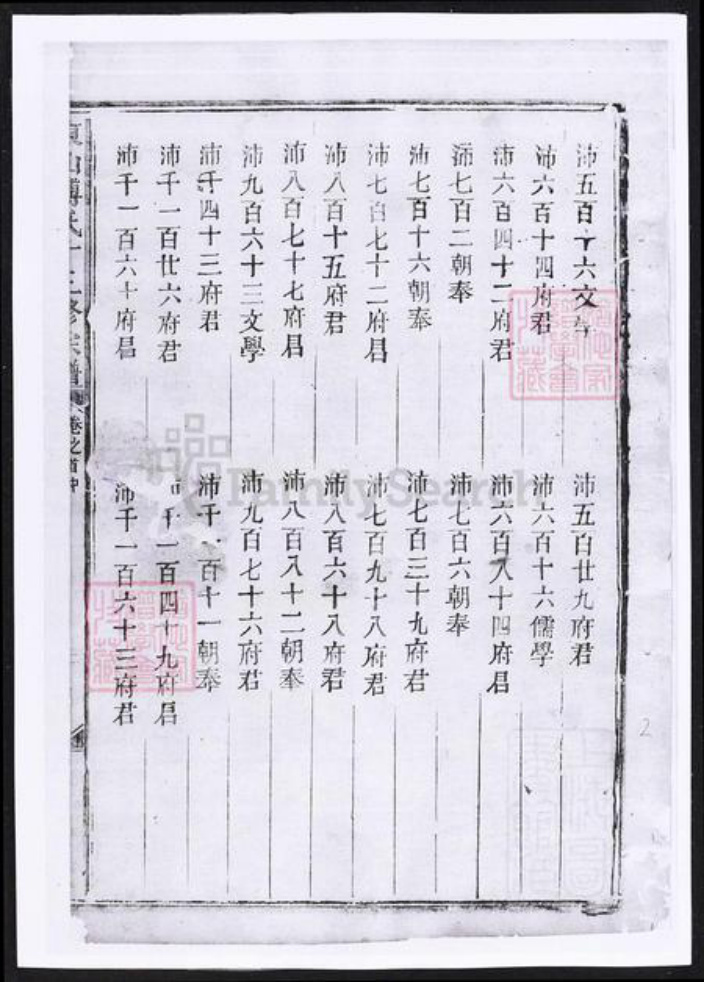 沛五百十六文學
沛五百廿九府君
沛六百十四府君
沛六百十六儒學
沛六百四十二府君
沛六百八十四府君
沛七百二朝奉
沛七百六朝奉
沛七百十六朝奉
沛七百三十九府君
沛七百七十二府君
沛七百九十八府君
沛八百十五府君
沛八百六十八府君
沛八百七十七府君
沛八百八十二朝奉
沛九百六十三文學
沛九百七十六府君
沛千四十三府君
沛千一百十一朝奉
沛千一百廿六府君
沛千一百四十九府君
沛千一百六十府君
沛千一百六十三府君
東山傅氏十三修宗譜 卷之首中
FamilySearch
2